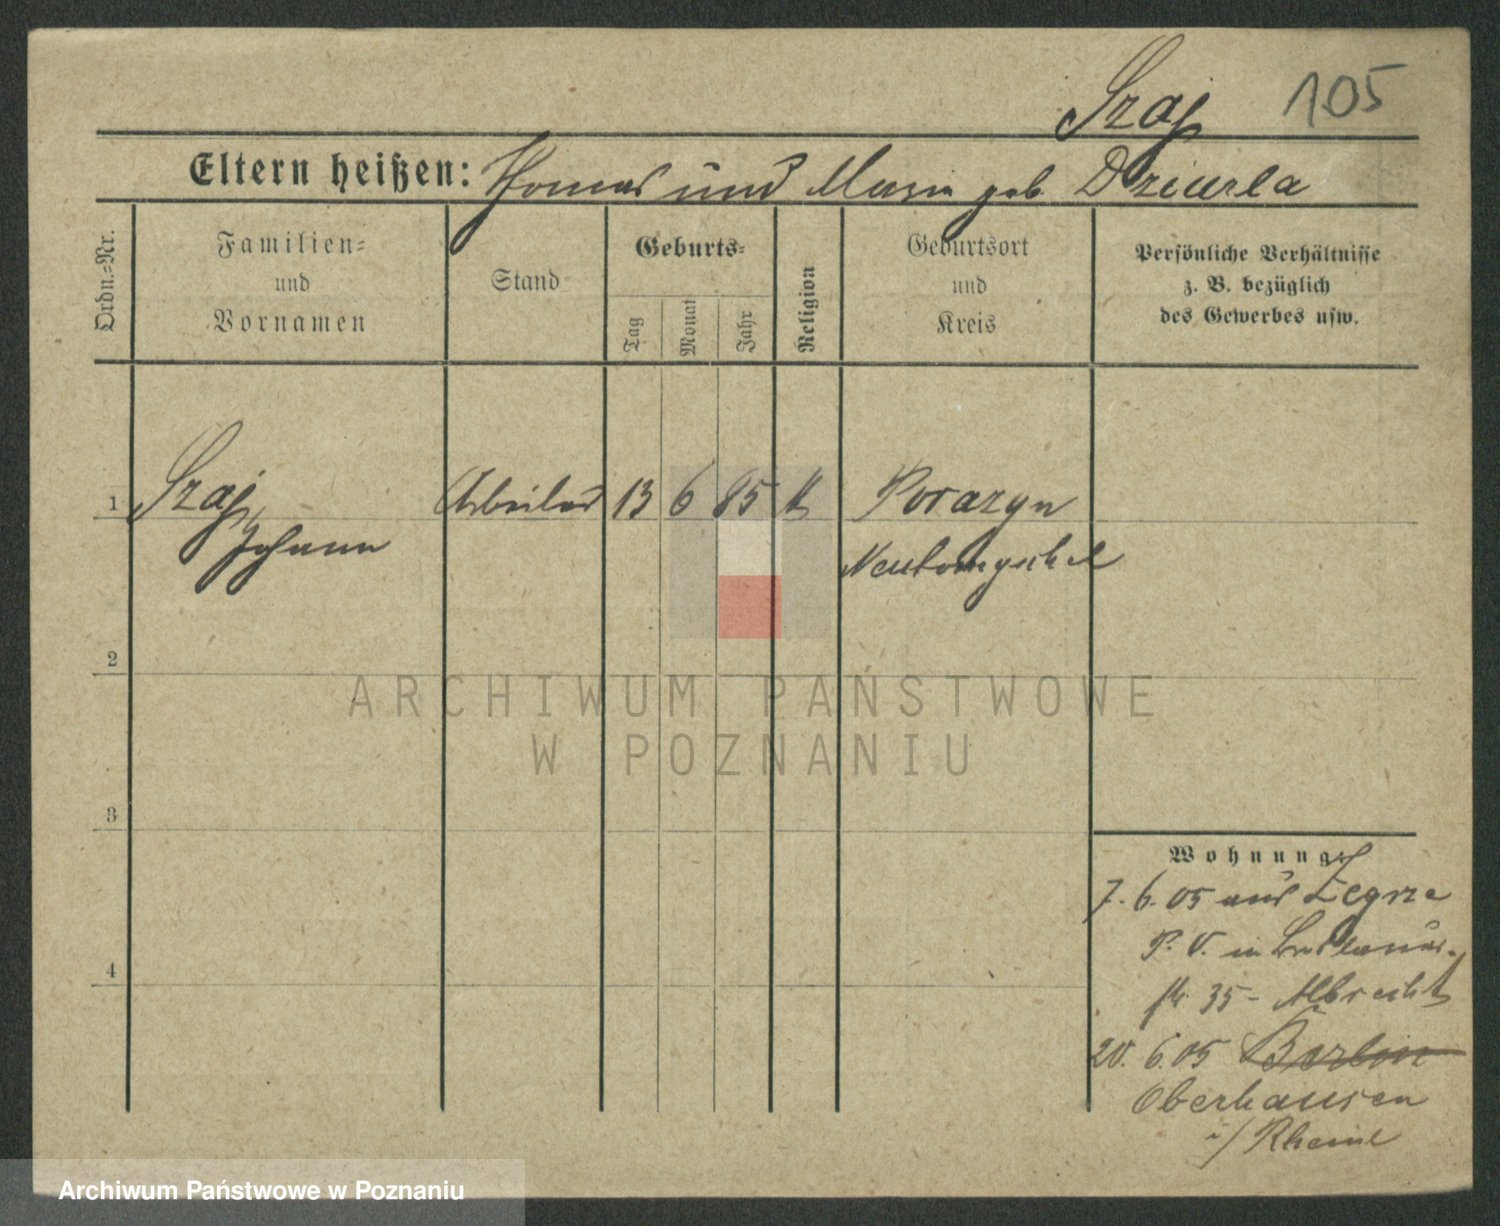 Szaj 105
Eltern heißen: Thomas und Maria geb. Dziurla
Ordn.=Nr.
Familien=
und
Vornamen
Stand
Geburts=
Tag
Monat
Jahr
Religion
Geburtsort
und
Kreis
Persönliche Verhältnisse
z. B. bezüglich
des Gewerbes usw.
1 Szaj, Arbeiter 13 6 85 k Porazyn
Johann Neutomyschel
2
ARCHIWUM PAŃSTWOWE
W POZNANIU
3
Wohnung:
7. 6. 05 aus Zegrze
P. V. in
4
str 35 - Albrecht
20. 6. 05 Berlin
Oberhausen
i/ Rheinl
Archiwum Państwowe w Poznaniu